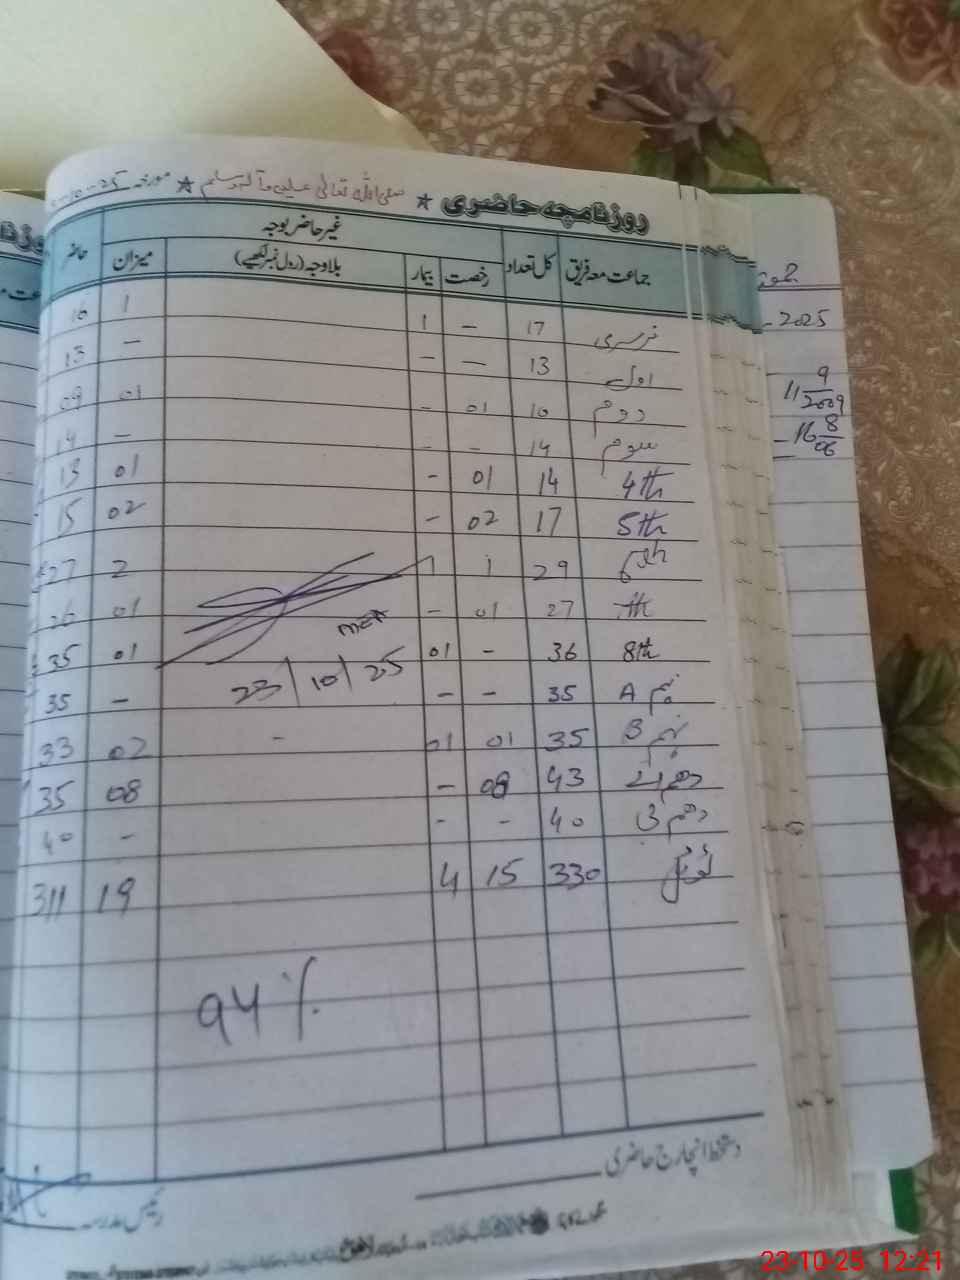 روزنامچہ حاضری ★ صلی اللہ تعالیٰ علیہ وآلہ وسلم ★ مورخہ 10-25
جماعت معہ فریق کل تعداد غیر حاضر بوجہ حاضر
رخصت بیمار بلاوجہ (رول نمبر لکھیے) میزان
نرسری 17 - 1 1 16
اول 13 - - - 13
دوم 10 01 - 01 09
سوم 14 - - - 14
4th 14 01 - 01 13
5th 17 02 - 02 15
6th 29 1 1 2 27
7th 27 01 - 01 26
8th 36 - 01 01 35
MEA
23/10/25
نہم A 35 - - - 35
نہم B 35 01 01 - 02 33
دہم 43 08 - 08 35
دہم B 40 - - - 40
ٹوٹل 330 15 4 19 311
94 %
دستخط انچارج حاضری
رئیس مدرسہ
- 2025
11 9/2009
- 16 8/06
23-10-25 12:21